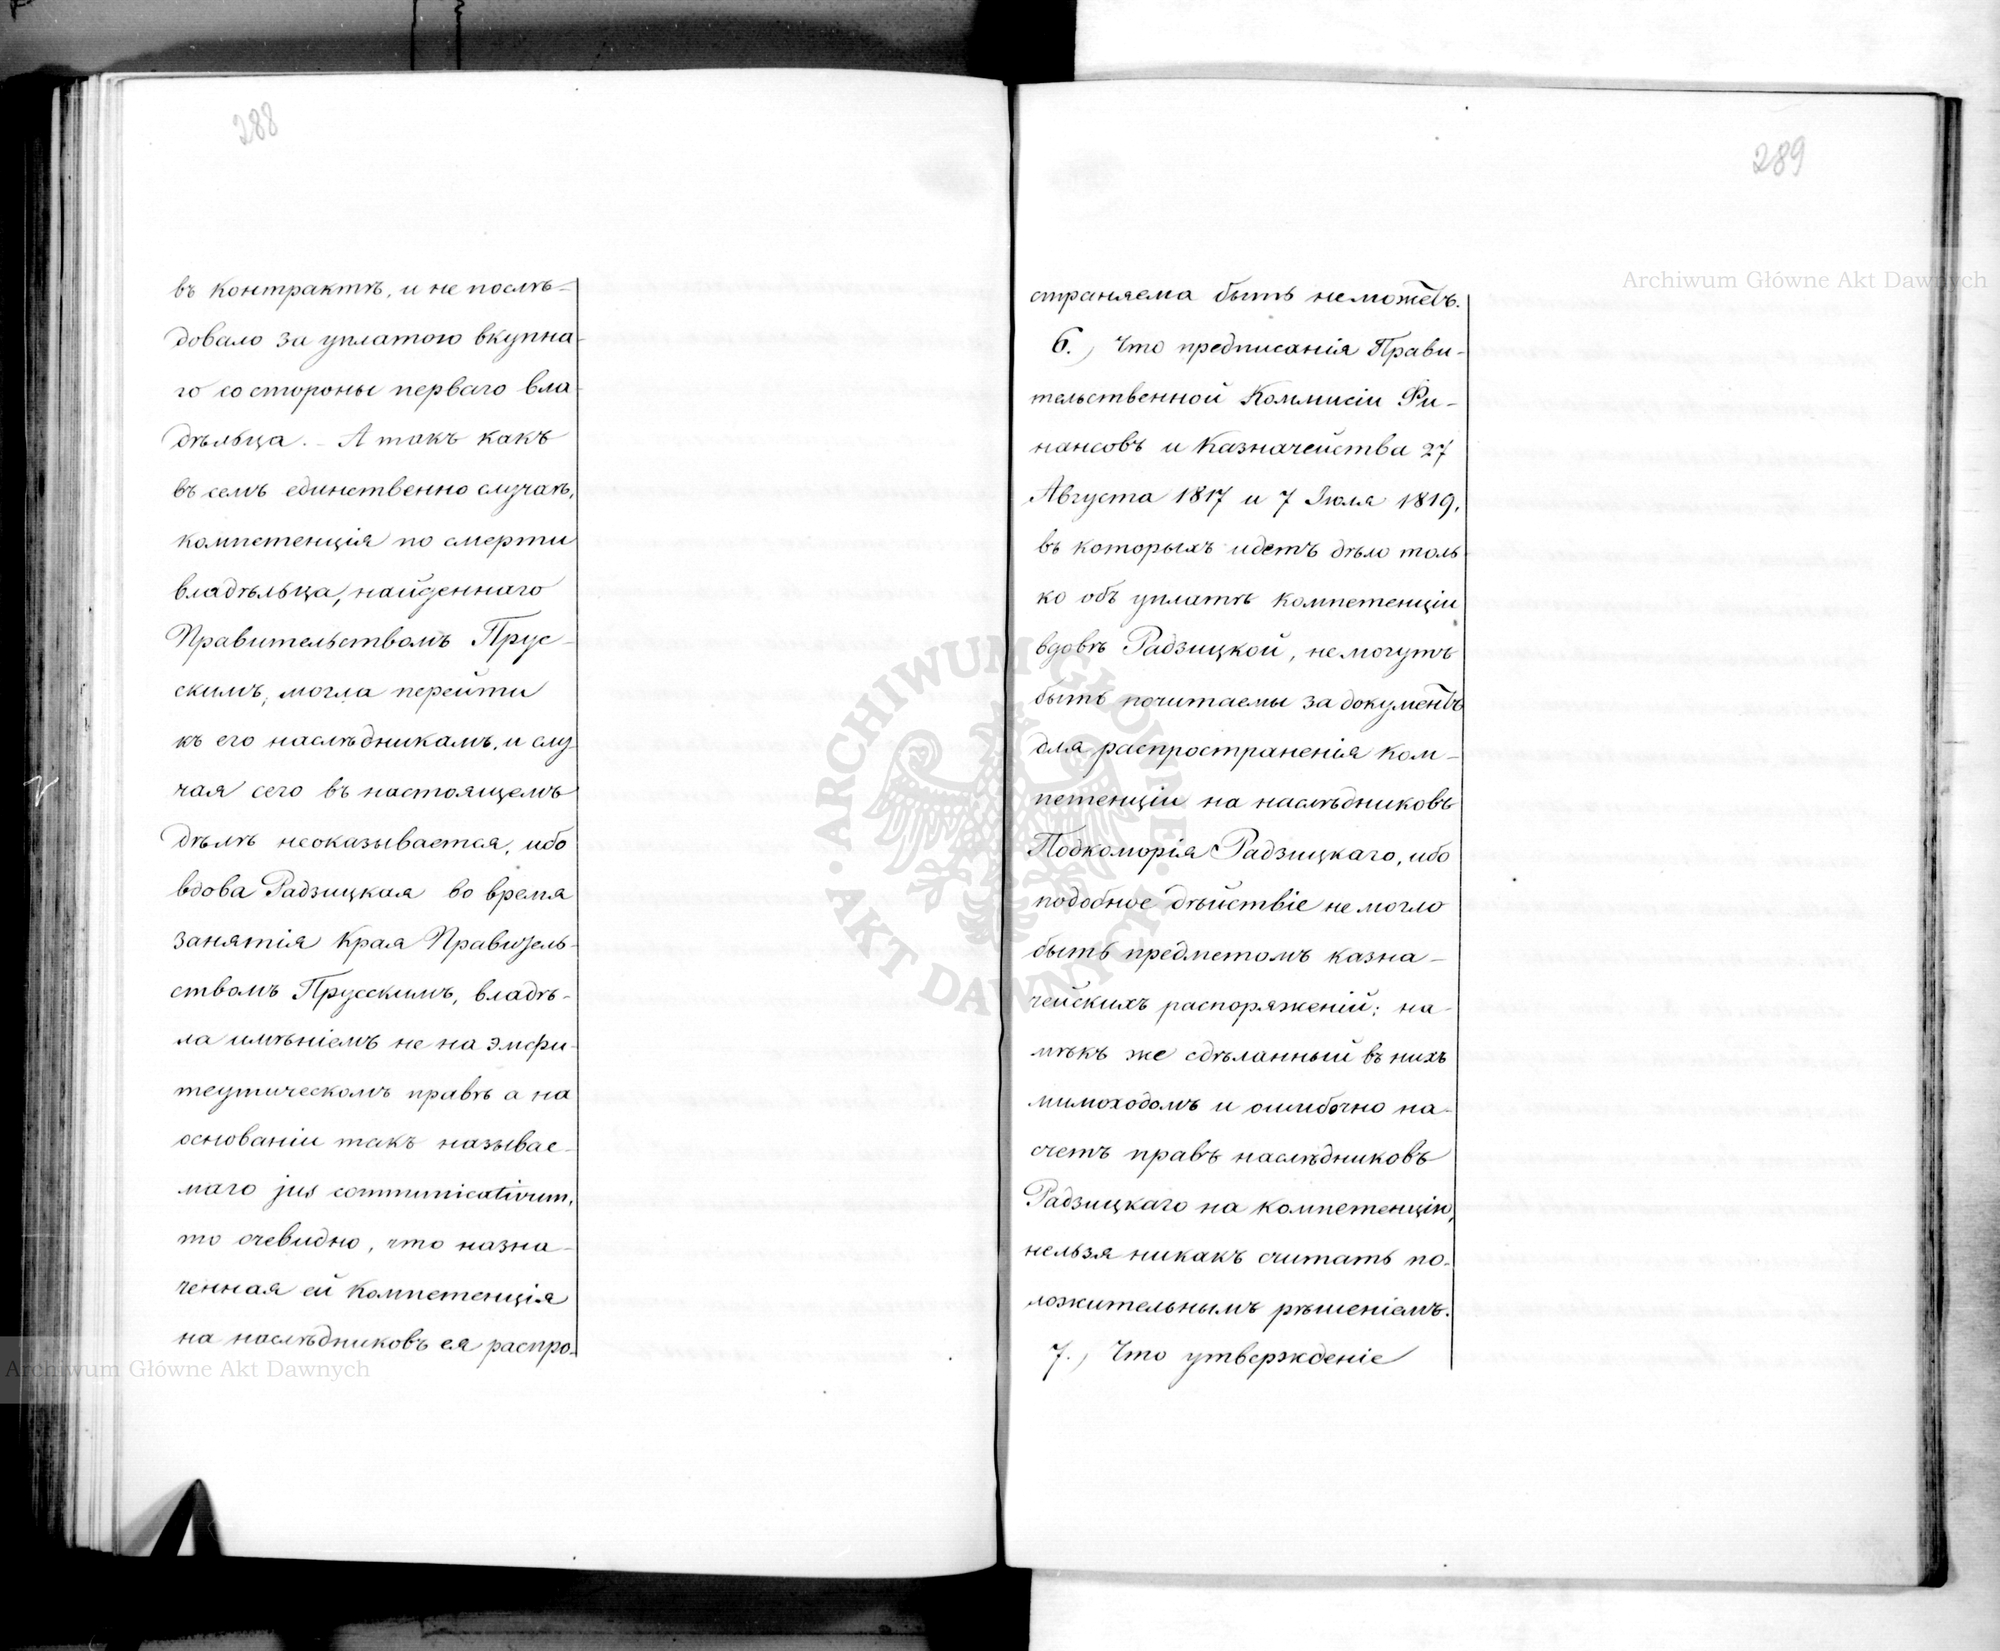 288
въ контрактѣ, и не послѣ-
довало за уплатою вкупна-
го со стороны перваго вла-
дѣльца. - А такъ какъ
въ семъ единственно случаѣ,
компетенція по смерти
владѣльца, найденнаго
Правительствомъ Прус-
скимъ, могла перейти
къ его наслѣдникамъ, и слу-
чая сего въ настоящемъ
дѣлѣ неоказывается, ибо
вдова Радзицкая во время
занятія Края Правитель-
ствомъ Прусскимъ, владѣ-
ла имѣніемъ не на эмфи-
теутическомъ правѣ а на
основаніи такъ называе-
маго jus communicativum,
то очевидно, что назна-
ченная ей компетенція
на наслѣдниковъ ея распро-
289
страняема быть неможетъ.
6., Что предписанія Прави-
тельственной Коммисіи Фи-
нансовъ и Казначейства 27
Августа 1817 и 7 Іюля 1819,
въ которыхъ идетъ дѣло толь-
ко объ уплатѣ компетенціи
вдовѣ Радзицкой, немогутъ
быть почитаемы за документъ
для распространенія ком-
петенціи на наслѣдниковъ
Подкоморія Радзицкаго, ибо
подобное дѣйствіе не могло
быть предметомъ казна-
чейскихъ распоряженій; на-
мѣкъ же сдѣланный въ нихъ
мимоходомъ и ошибочно на-
счетъ правъ наслѣдниковъ
Радзицкаго на компетенцію,
нельзя никакъ считать по-
ложительнымъ рѣшеніемъ.
7., Что утвержденіе
Archiwum Główne Akt Dawnych
Archiwum Główne Akt Dawnych
ARCHIWUM GŁÓWNE AKT DAWNYCH